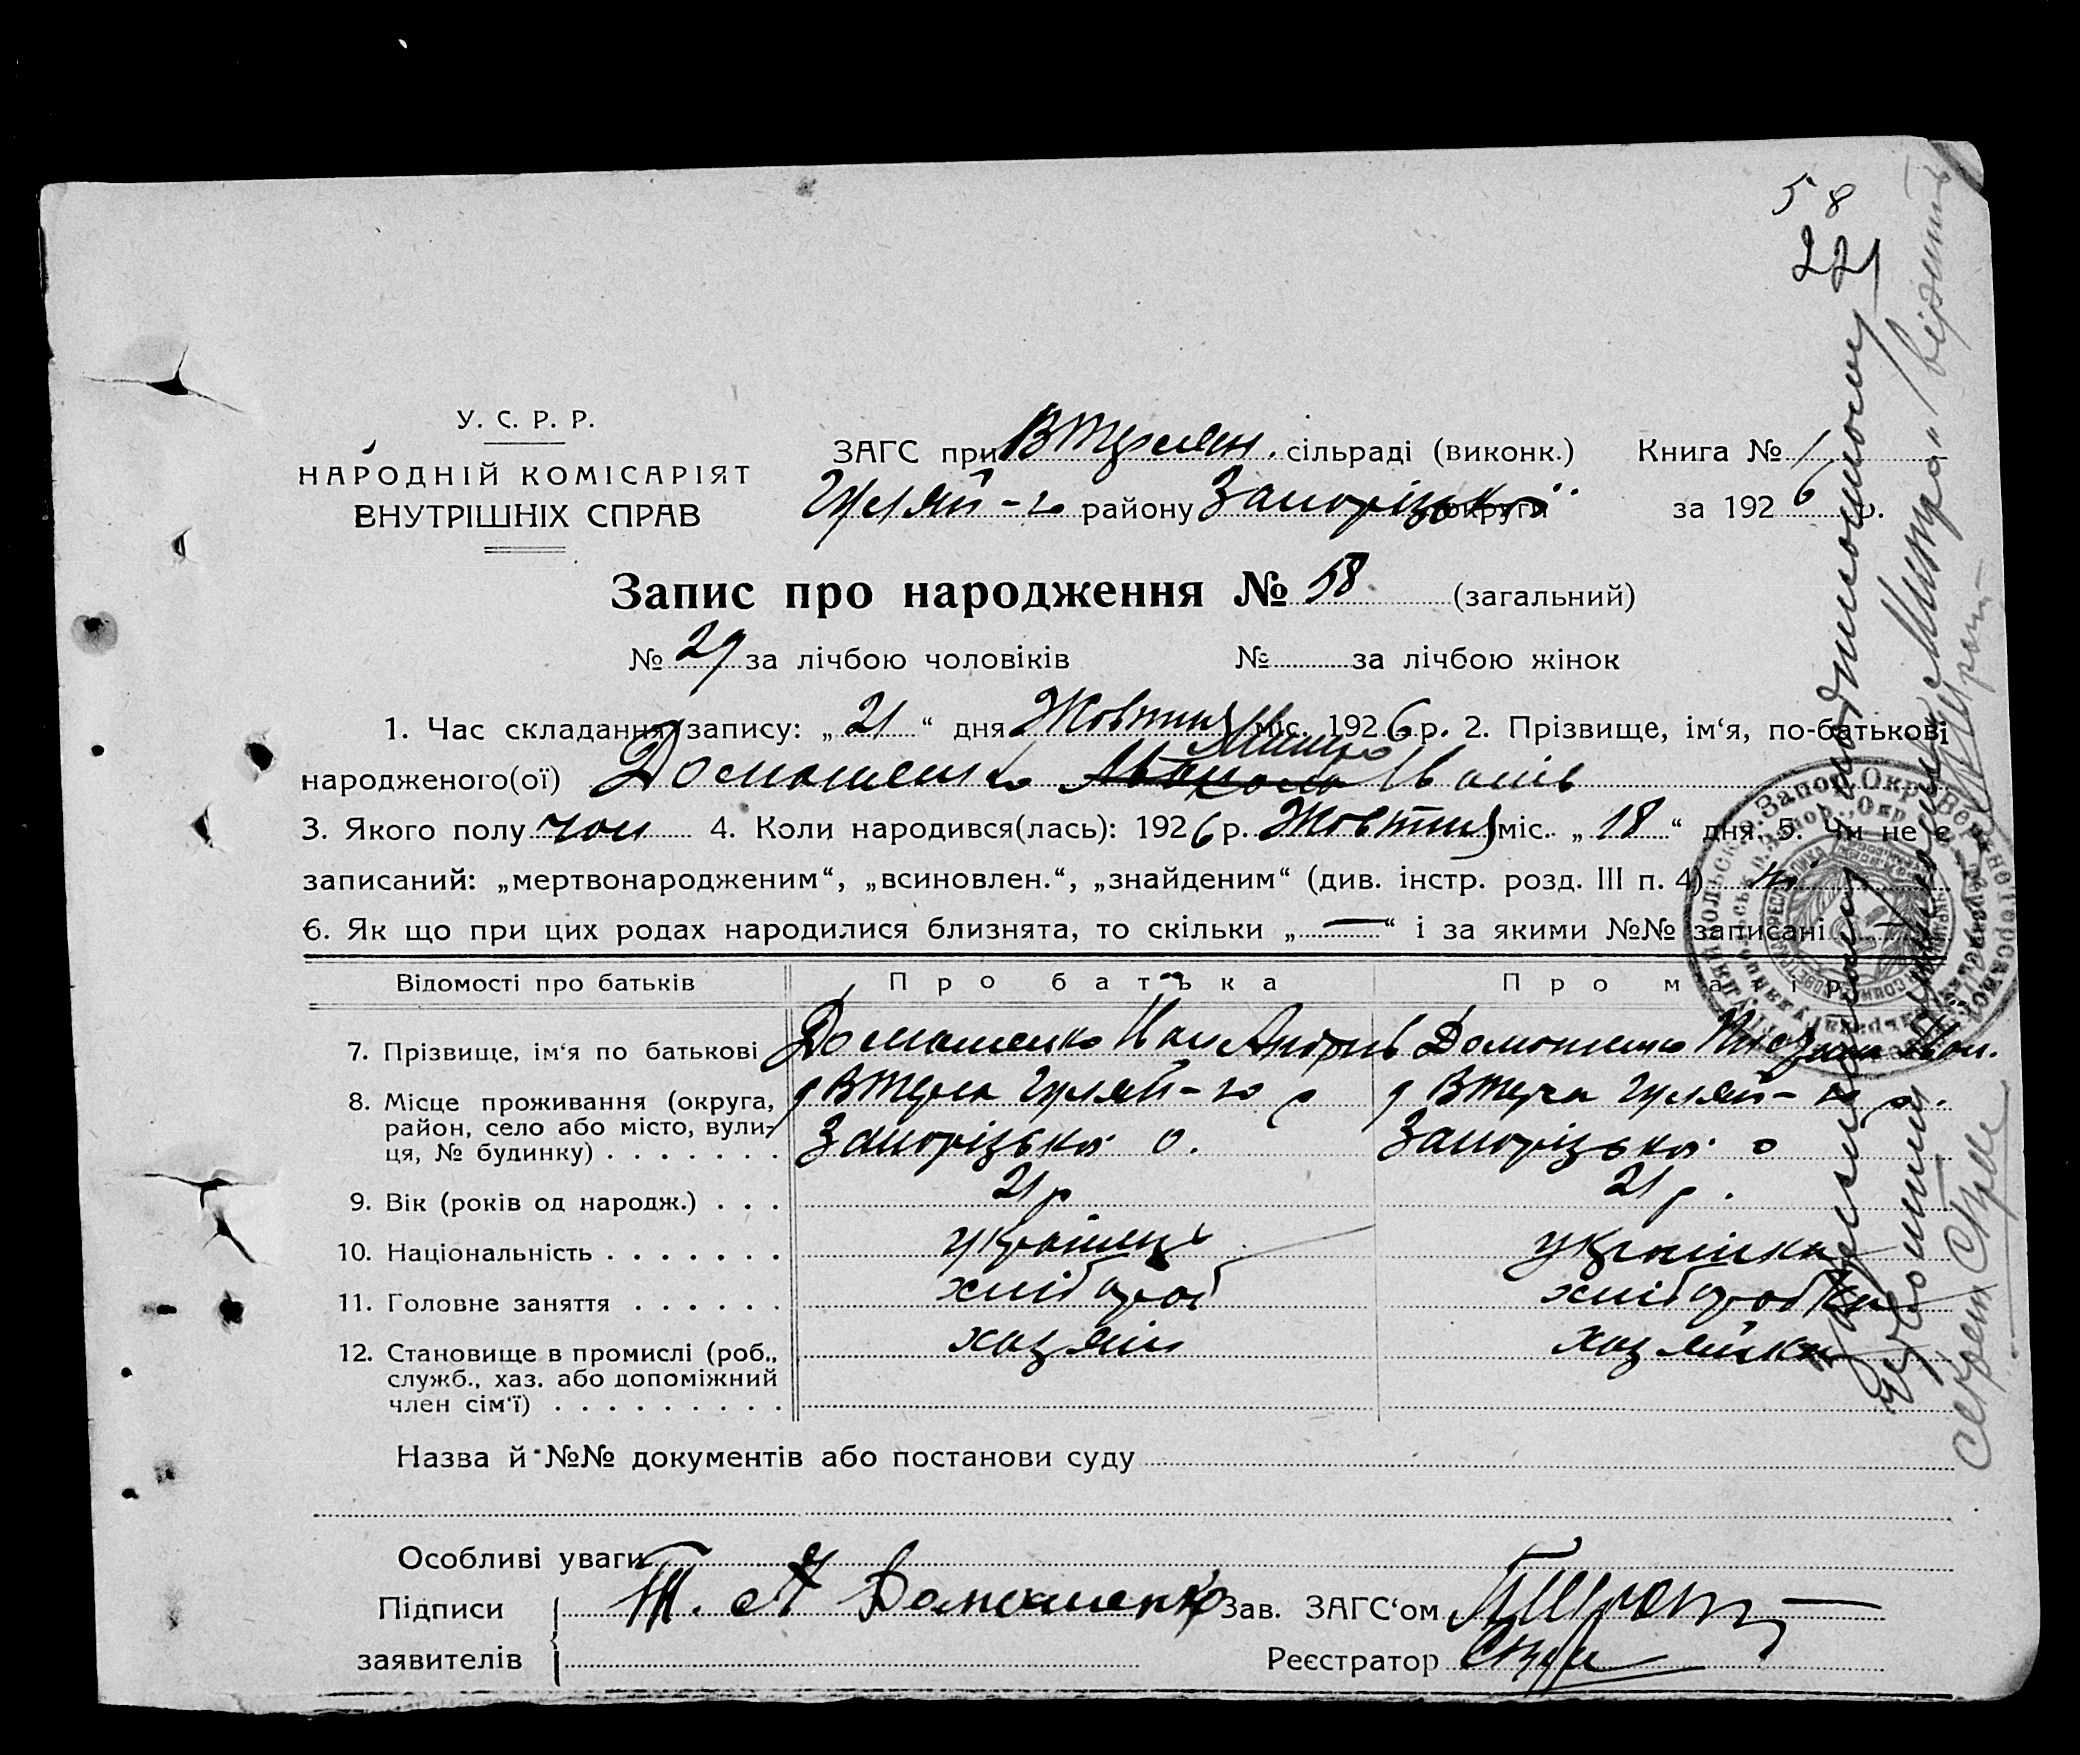 58
221
У. С. Р. Р.
НАРОДНІЙ КОМІСАРІЯТ
ВНУТРІШНІХ СПРАВ
ЗАГС при В Терсян. сільраді (виконк.) Книга № 1
Гуляй-го району Запорізької округи за 1926 р.
Запис про народження № 58 (загальний)
№ 29 за лічбою чоловіків № за лічбою жінок
1. Час складання запису: „ 21 “ дня Жовтня міс. 1926 р. 2. Прізвище, ім‘я, по-батькові
Митро
народженого(ої) Домашенко Іванів
3. Якого полу чол 4. Коли народився(лась): 1926 р. Жовтня міс. „ 18 “ дня. 5. Чи не є
записаний: „мертвонародженим“, „всиновлен.“, „знайденим“ (див. інстр. розд. III п. 4)
6. Як що при цих родах народилися близнята, то скільки „ — “ і за якими №№ записані
Відомості про батьків Про батька Про матір
7. Прізвище, ім‘я по батькові Домашенко Іван Андріїв Домашенко
8. Місце проживання (округа, В Терса Гуляй-го р В Терса Гуляй-го р.
район, село або місто, вули-
ця, № будинку) . . . . . . . Запорізької о. Запорізької о
9. Вік (років од народж.) . . . 21 р 21 р.
10. Національність . . . . . . . українець українка
11. Головне заняття . . . . . . хлібороб хліборобка
12. Становище в промислі (роб., хазяїн хазяйка
служб., хаз. або допоміжний
член сім‘ї) . . . . . . . . .
Назва й №№ документів або постанови суду
Особливі уваги
Підписи Домашенко Зав. ЗАГС‘ом
заявителів Реєстратор
„Митро“ вірить
Секрет